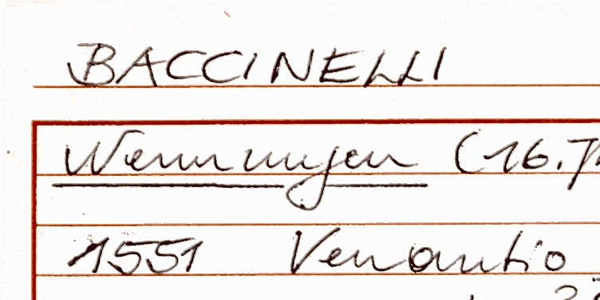 BACCINELLI
Wennungen (16.
1551 Venantio